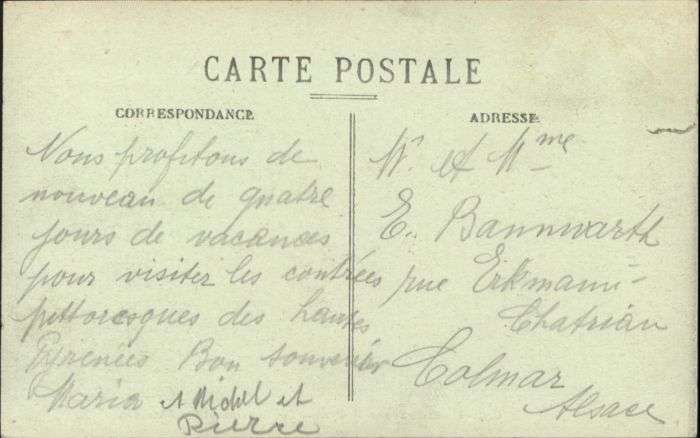 CARTE POSTALE
CORRESPONDANCE
Nous profitons de
nouveau de quatre
jours de vacances
pour visiter les contrées
pittoresques des hautes
Pyrénées Bon souvenir
Maria et Michel et
Pierre
ADRESSE
Mr et Mme
E. Bannwarth
rue Erkmann-
Chatrian
Colmar
Alsace